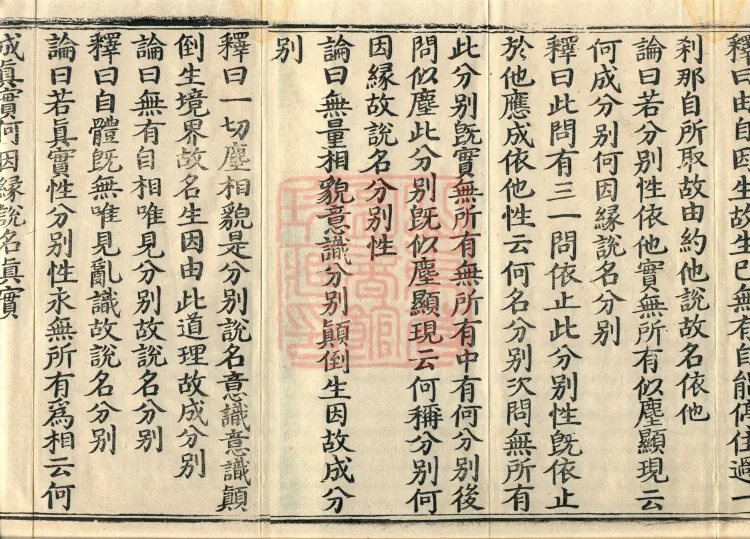 釋曰由自因生故生已無有自能停住過一
刹那自所取故由約他說故名依他
論曰若分別性依他實無所有似塵顯現云
何成分別何因緣說名分別
釋曰此問有三一問依止此分別性旣依止
於他應成依他性云何名分別次問無所有
此分別旣實無所有無所有中有何分別後
問似塵此分別旣似塵顯現云何稱分別何
因緣故說名分別性
論曰無量相貌意識分別顚倒生因故成分
別
釋曰一切塵相貌是分別說名意識意識顚
倒生境界故名生因由此道理故成分別
論曰無有自相唯見分別故說名分別
釋曰自體旣無唯見亂識故說名分別
論曰若眞實性分別性永無所有爲相云何
成眞實何因緣說名眞實